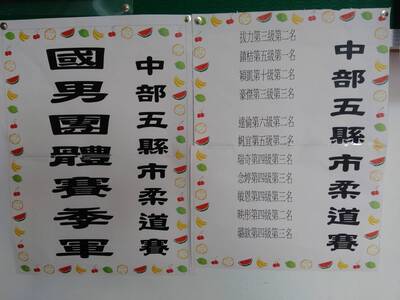 中部五縣市柔道賽
國男團體賽季軍
中部五縣市柔道賽
拔力第三級第二名
鎮梧第五級第一名
穎凱第十級第二名
豪傑第三級第三名
達倫第六級第二名
楓宜第五級第二名
瑞奇第四級第三名
念婷第四級第三名
敏恩第四級第三名
映彤第四級第二名
第四級第三名